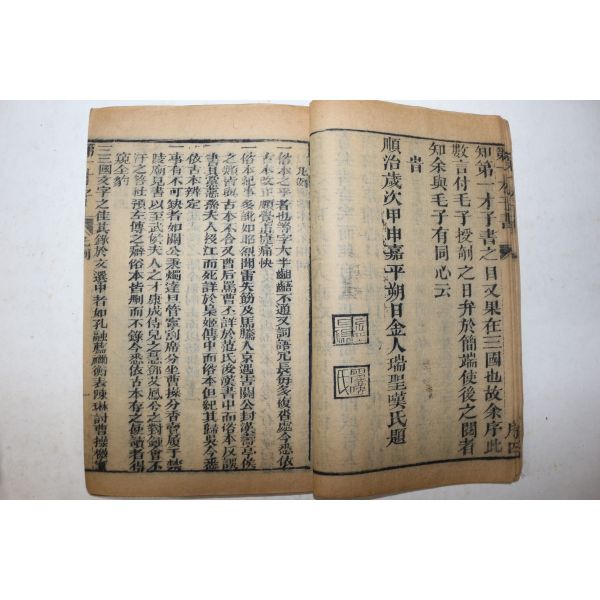 知第一才子書之目又果在三國也故余序此
數言付毛子授剞之日弁於簡端使後之閱者
知余與毛子有同心云
旹
順治歲次甲申嘉平朔日金人瑞聖嘆氏題
序四
凡例
一俗本之乎者也等字大半齟齬不通又詞語冗長每多複沓處今悉依
古本改正頗覺直捷痛快
一俗本紀事多訛如昭烈聞雷失筯及馬騰入京遇害關公封漢壽亭侯
之類皆與古本不合又曹后罵曹丕詳於范氏後漢書中而俗本反誤
書其黨惡孫夫人投江而死詳於梟姬傳中而俗本但紀其歸吳今悉
依古本辨定
一事有不可缺者如關公秉燭達旦管寧割席分坐曹操分香賣履于禁
陵廟見畫以至武侯夫人之才康成侍兒之慧鄧艾鳳兮之對鍾會不
汗之答杜預左傳之癖俗本皆刪而不錄今悉依古本存之使讀者得
窺全豹
一三國文字之佳其錄於文選中者如孔融薦禰衡表陳琳討曹操檄實